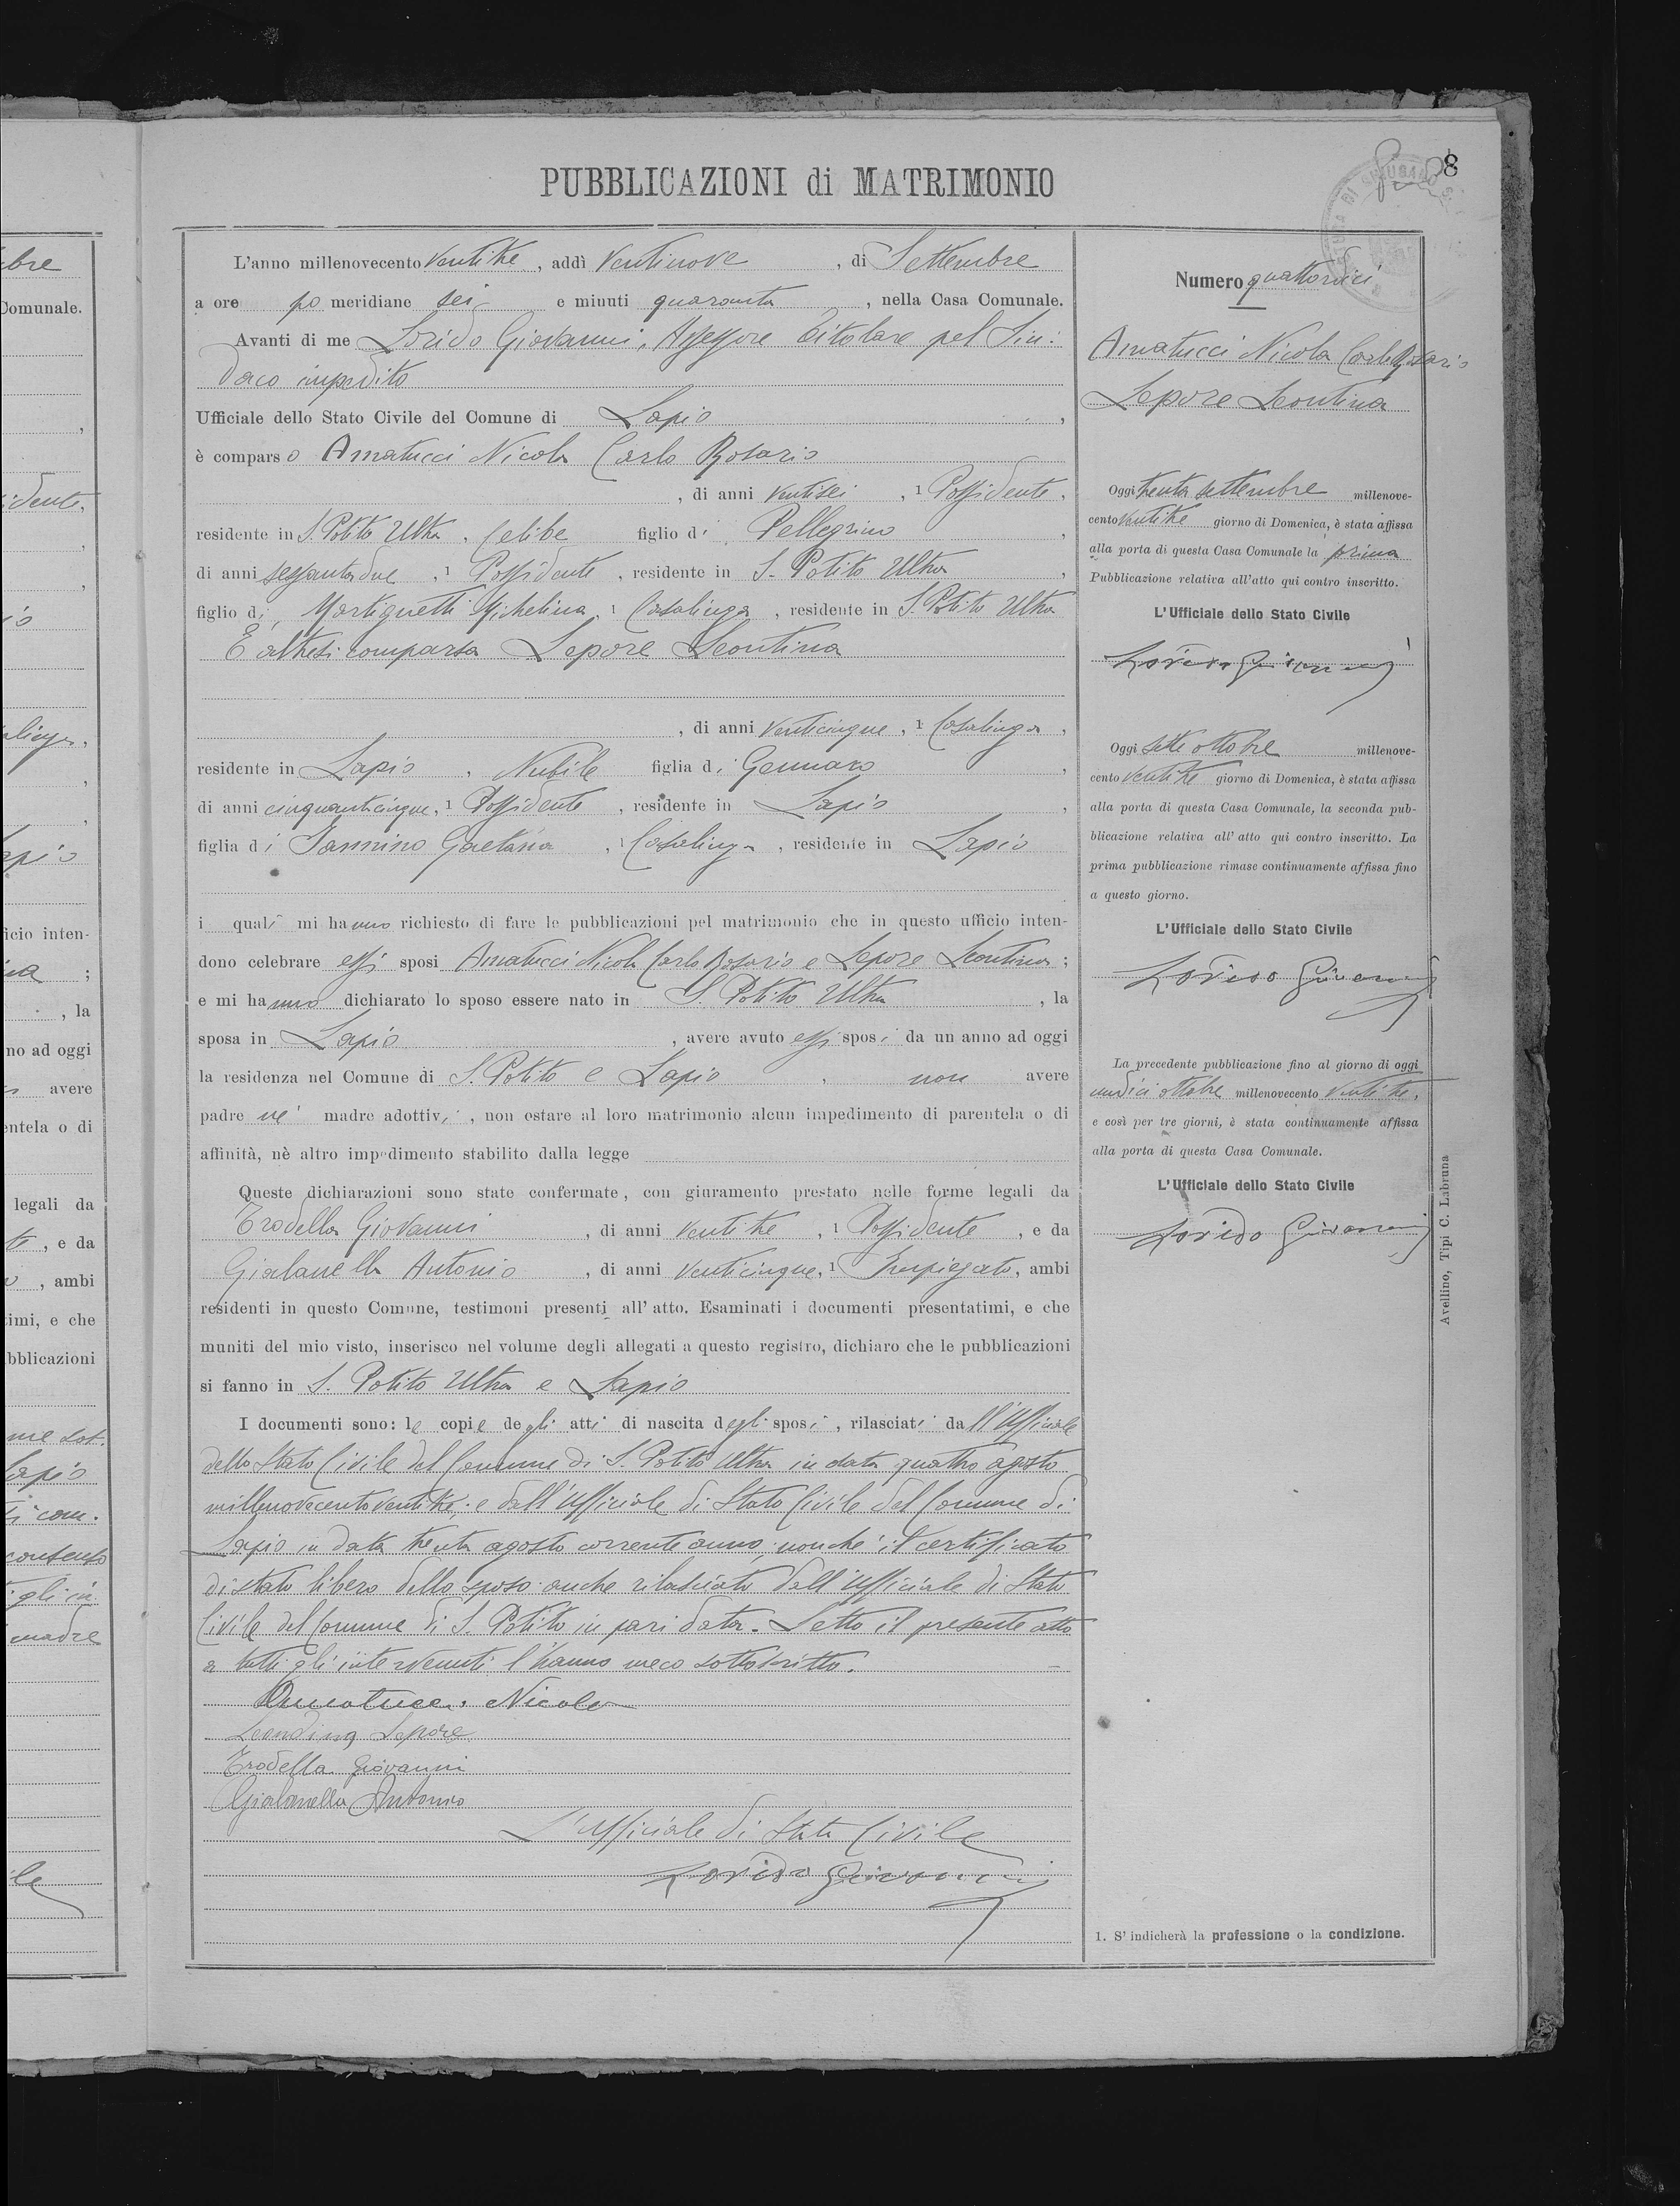 8
PUBBLICAZIONI di MATRIMONIO
L'anno millenovecento ventitre, addì ventinove, di Settembre
a ore po meridiane sei e minuti quaranta, nella Casa Comunale.
Avanti di me Lorido Giovanni, Assessore titolare pel Sin:
daco impedito
Ufficiale dello Stato Civile del Comune di Lapio,
è comparso Amatucci Nicola Carlo Rosario
, di anni ventisei, 1 Possidente,
residente in S. Potito Ultra, Celibe figlio di Pellegrino,
di anni sessantadue, 1 Possidente, residente in S. Potito Ultra,
figlio di, Martignetti Michelina, 1 Casalinga, residente in S. Potito Ultra
E altresì comparsa Lepore Leontina
, di anni venticinque, 1 Casalinga,
residente in Lapio, Nubile figlia di Gennaro,
di anni cinquanticinque, 1 Possidente, residente in Lapio,
figlia di Iannino Gaetana, 1 Casalinga, residente in Lapio
i quali mi hanno richiesto di fare le pubblicazioni pel matrimonio che in questo ufficio inten-
dono celebrare essi sposi Amatucci Nicola Carlo Rosario e Lepore Leontina;
e mi hanno dichiarato lo sposo essere nato in S. Potito Ultra, la
sposa in Lapio, avere avuto essi sposi da un anno ad oggi
la residenza nel Comune di S. Potito e Lapio, non avere
padre nè madre adottivi, non ostare al loro matrimonio alcun impedimento di parentela o di
affinità, nè altro impedimento stabilito dalla legge
Queste dichiarazioni sono state confermate, con giuramento prestato nelle forme legali da
Trodella Giovanni, di anni ventitre, 1 Possidente, e da
Gialanella Antonio, di anni venticinque, 1 Impiegato, ambi
residenti in questo Comune, testimoni presenti all'atto. Esaminati i documenti presentatimi, e che
muniti del mio visto, inserisco nel volume degli allegati a questo registro, dichiaro che le pubblicazioni
si fanno in S. Potito Ultra e Lapio
I documenti sono: le copie degli atti di nascita degli sposi, rilasciati dall'Ufficiale
dello Stato Civile del Comune di S. Potito Ultra in data quattro agosto
millenovecentoventitre; e dall'Ufficiale di Stato Civile del Comune di
Lapio in data trenta agosto corrente anno; nonchè il certificato
di stato libero dello sposo anche rilasciato dall'Ufficiale di Stato
Civile del Comune di S. Potito in pari data. Letto il presente atto
a tutti gli intervenuti l'hanno meco sottoscritto.
Amatucci Nicola
Leondina Lepore
Trodella Giovanni
Gialanella Antonio
L'Ufficiale di Stato Civile
Lorido Giovanni
Numero quattordici
Amatucci Nicola Carlo Rosario
Lepore Leontina
Oggi trenta settembre millenove-
cento ventitre giorno di Domenica, è stata affissa
alla porta di questa Casa Comunale la prima
Pubblicazione relativa all'atto qui contro inscritto.
L'Ufficiale dello Stato Civile
Lorido Giovanni
Oggi sette ottobre millenove-
cento ventitre giorno di Domenica, è stata affissa
alla porta di questa Casa Comunale, la seconda pub-
blicazione relativa all'atto qui contro inscritto. La
prima pubblicazione rimase continuamente affissa fino
a questo giorno.
L'Ufficiale dello Stato Civile
Lorido Giovanni
La precedente pubblicazione fino al giorno di oggi
undici ottobre millenovecento ventitre,
e così per tre giorni, è stata continuamente affissa
alla porta di questa Casa Comunale.
L'Ufficiale dello Stato Civile
Lorido Giovanni
1. S'indicherà la professione o la condizione.
Avellino, Tipi C. Labruna